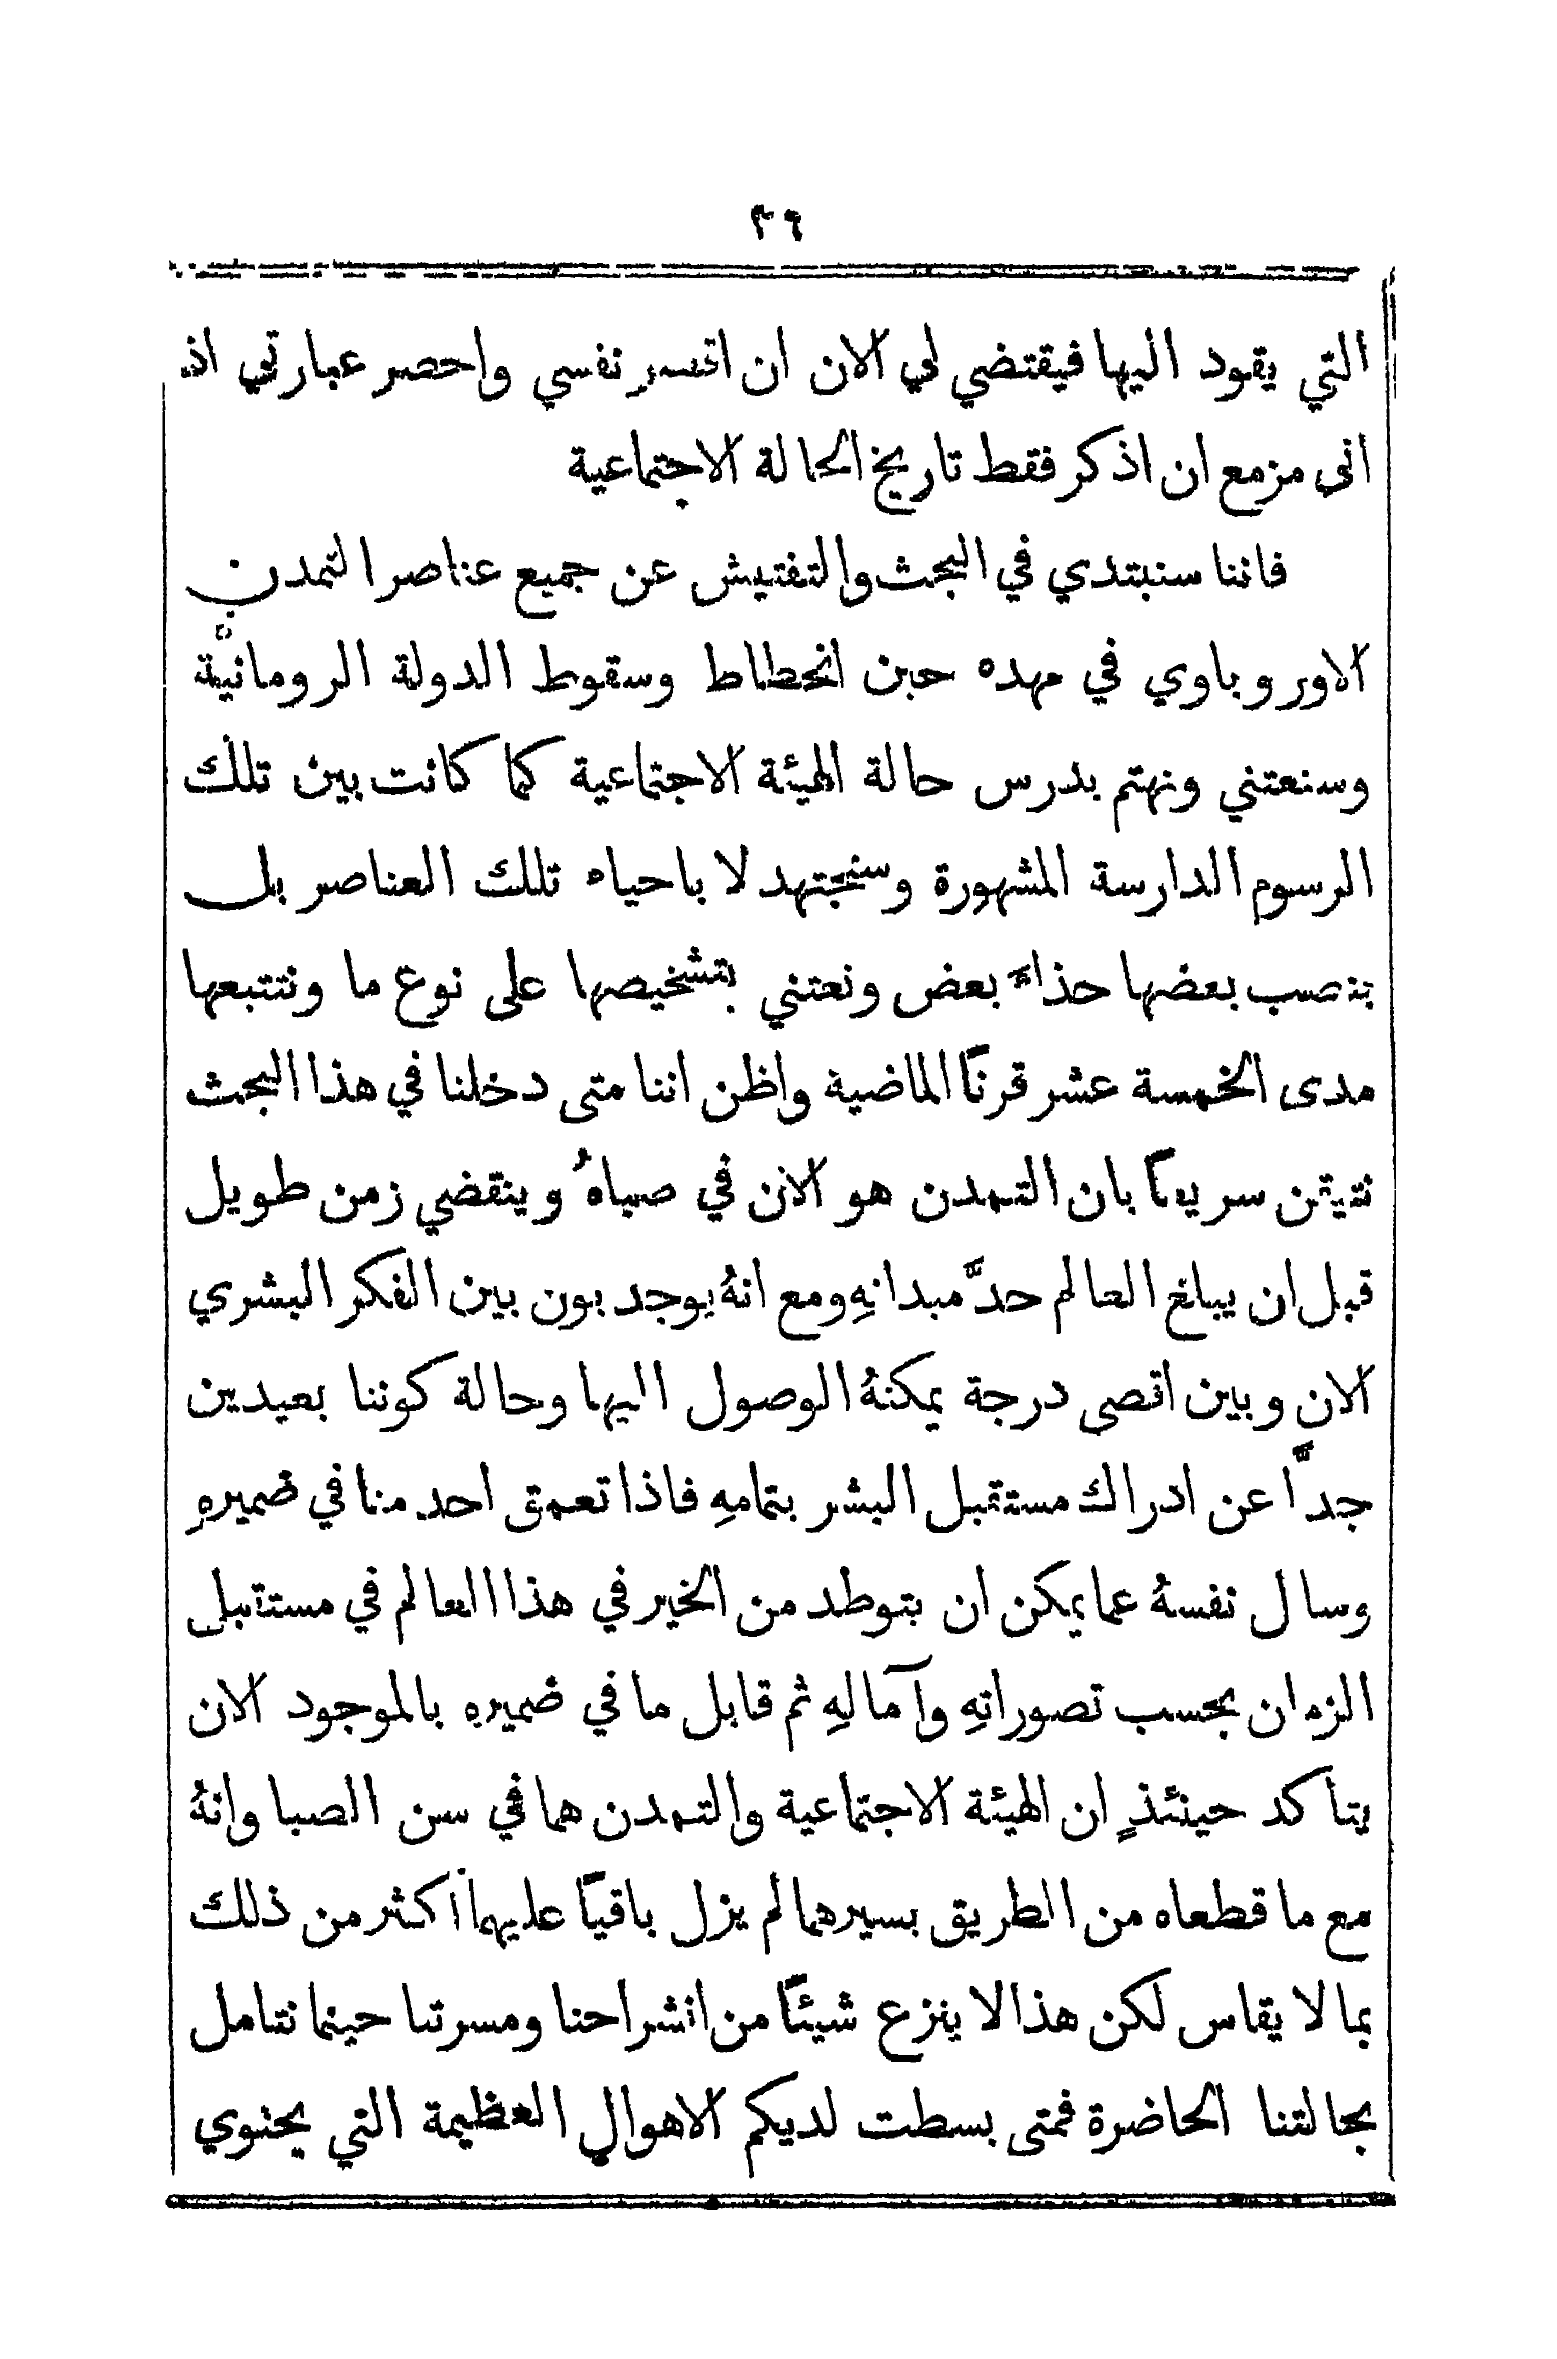 ٣٦
التي يقود اليها فيقتضي لي الان ان اقسر نفسي واحصر عبارتي اذ
اني مزمع ان اذكر فقط تاريخ الحالة الاجتماعية
فاننا سنبتدي في البحث والتفتيش عن جميع عناصر التمدن
الاوروباوي في مهده حين انحطاط وسقوط الدولة الرومانيَّة
وسنعتني ونهتم بدرس حالة الهيئة الاجتماعية كما كانت بين تلك
الرسوم الدارسة المشهورة وسنجتهد لا باحياء تلك العناصر بل
بنصب بعضها حذاءَ بعض ونعتني بتشخيصها على نوع ما ونتتبعها
مدى الخمسة عشر قرنًا الماضية واظن اننا متى دخلنا في هذا البحث
نتيقن سريعًا بان التمدن هو الان في صباهُ وينقضي زمن طويل
قبل ان يبلغ العالم حدَّ ميدانهِ ومع انهُ يوجد بون بين الفكر البشري
الان وبين اقصى درجة يمكنهُ الوصول اليها وحالة كوننا بعيدين
جدًّا عن ادراك مستقبل البشر بتمامهِ فاذا تعمق احد منا في ضميرهِ
وسال نفسهُ عما يمكن ان يتوطد من الخير في هذا العالم في مستقبل
الزمان بحسب تصوراتهِ وآمالهِ ثم قابل ما في ضميرهِ بالموجود الان
يتأكد حينئذٍ ان الهيئة الاجتماعية والتمدن هما في سن الصبا وانهُ
مع ما قطعاه من الطريق بسيرهما لم يزل باقيًا عليهما أكثر من ذلك
بما لا يقاس لكن هذا لا ينزع شيئًا من انشراحنا ومسرتنا حينما نتامل
بحالتنا الحاضرة فمتى بسطت لديكم الاهوال العظيمة التي يحتوي